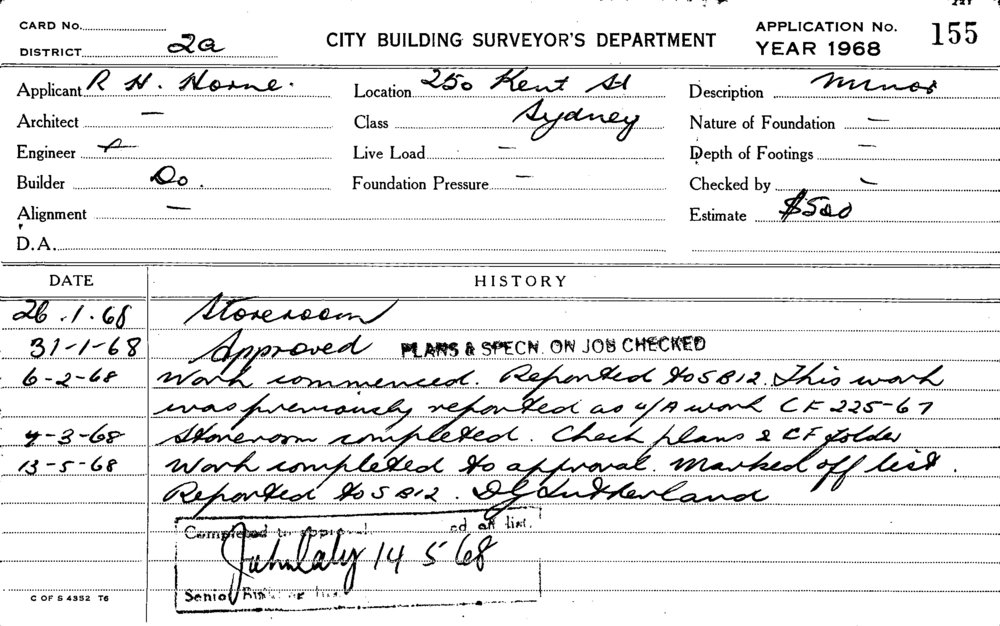 CARD No.
DISTRICT 2a
CITY BUILDING SURVEYOR'S DEPARTMENT
APPLICATION No. 155
YEAR 1968
Applicant R H. Horne.
Location 250 Kent St
Description Minor
Architect —
Class Sydney
Nature of Foundation —
Engineer
Live Load —
Depth of Footings —
Builder Do.
Foundation Pressure —
Checked by
Alignment —
Estimate $500
D.A.
DATE HISTORY
26.1.68 Storeroom
31-1-68 Approved PLANS & SPECN. ON JOB CHECKED
6-2-68 Work commenced. Reported to SB12. This work
was previously reported as u/A work CF 225-67
4-3-68 Storeroom completed. Check plans & CF folder
13-5-68 Work completed to approval. Marked off list.
Reported to SB12. DJ Sutherland
Completed to approval off list.
14 5 68
Senior
C OF S 4352 T6